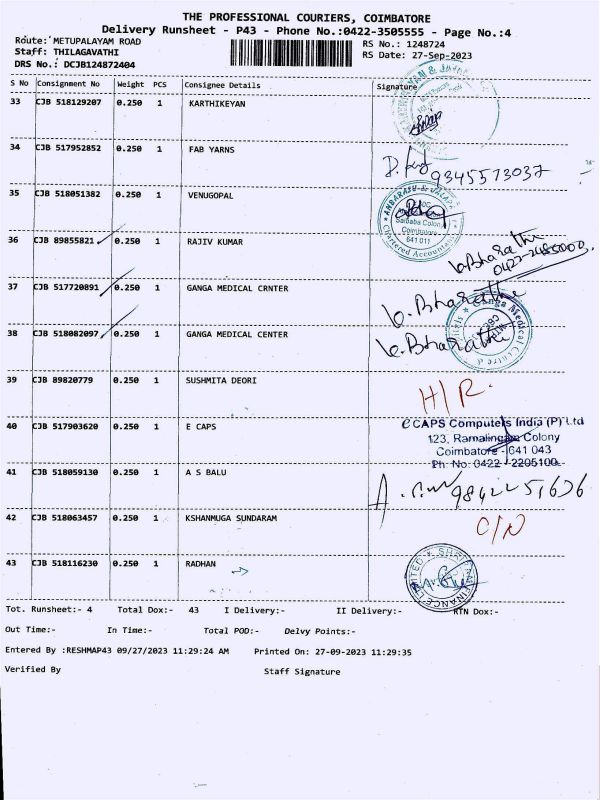 THE PROFESSIONAL COURIERS, COIMBATORE
Delivery Runsheet - P43 - Phone No.:0422-3505555 - Page No.:4
Route: METUPALAYAM ROAD RS No.: 1248724
Staff: THILAGAVATHI RS Date: 27-Sep-2023
DRS No.: DCJB124872404
S No Consignment No Weight PCS Consignee Details Signature
33 CJB 518129207 0.250 1 KARTHIKEYAN
34 CJB 517952852 0.250 1 FAB YARNS
9345573037
35 CJB 518051382 0.250 1 VENUGOPAL
ANBARASU & JALAPA
Saibaba Colony
Coimbatore
641 011
Chartered Accountants
36 CJB 89855821 0.250 1 RAJIV KUMAR
V.Bharathi
0422-2485000
37 CJB 517720891 0.250 1 GANGA MEDICAL CRNTER
V.Bharathi
38 CJB 518082097 0.250 1 GANGA MEDICAL CENTER
V.Bharathi
Ganga Medical Centre &
39 CJB 89820779 0.250 1 SUSHMITA DEORI
H/R.
40 CJB 517903620 0.250 1 E CAPS
eCAPS Computers India (P) Ltd
123, Ramalingam Colony
Coimbatore - 641 043
Ph: No: 0422 - 2205100
41 CJB 518059130 0.250 1 A S BALU
9842251676
42 CJB 518063457 0.250 1 KSHANMUGA SUNDARAM
C/N
43 CJB 518116230 0.250 1 RADHAN
FINANCE LIMITED
Tot. Runsheet:- 4 Total Dox:- 43 I Delivery:- II Delivery:- RTN Dox:-
Out Time:- In Time:- Total POD:- Delvy Points:-
Entered By :RESHMAP43 09/27/2023 11:29:24 AM Printed On: 27-09-2023 11:29:35
Verified By Staff Signature